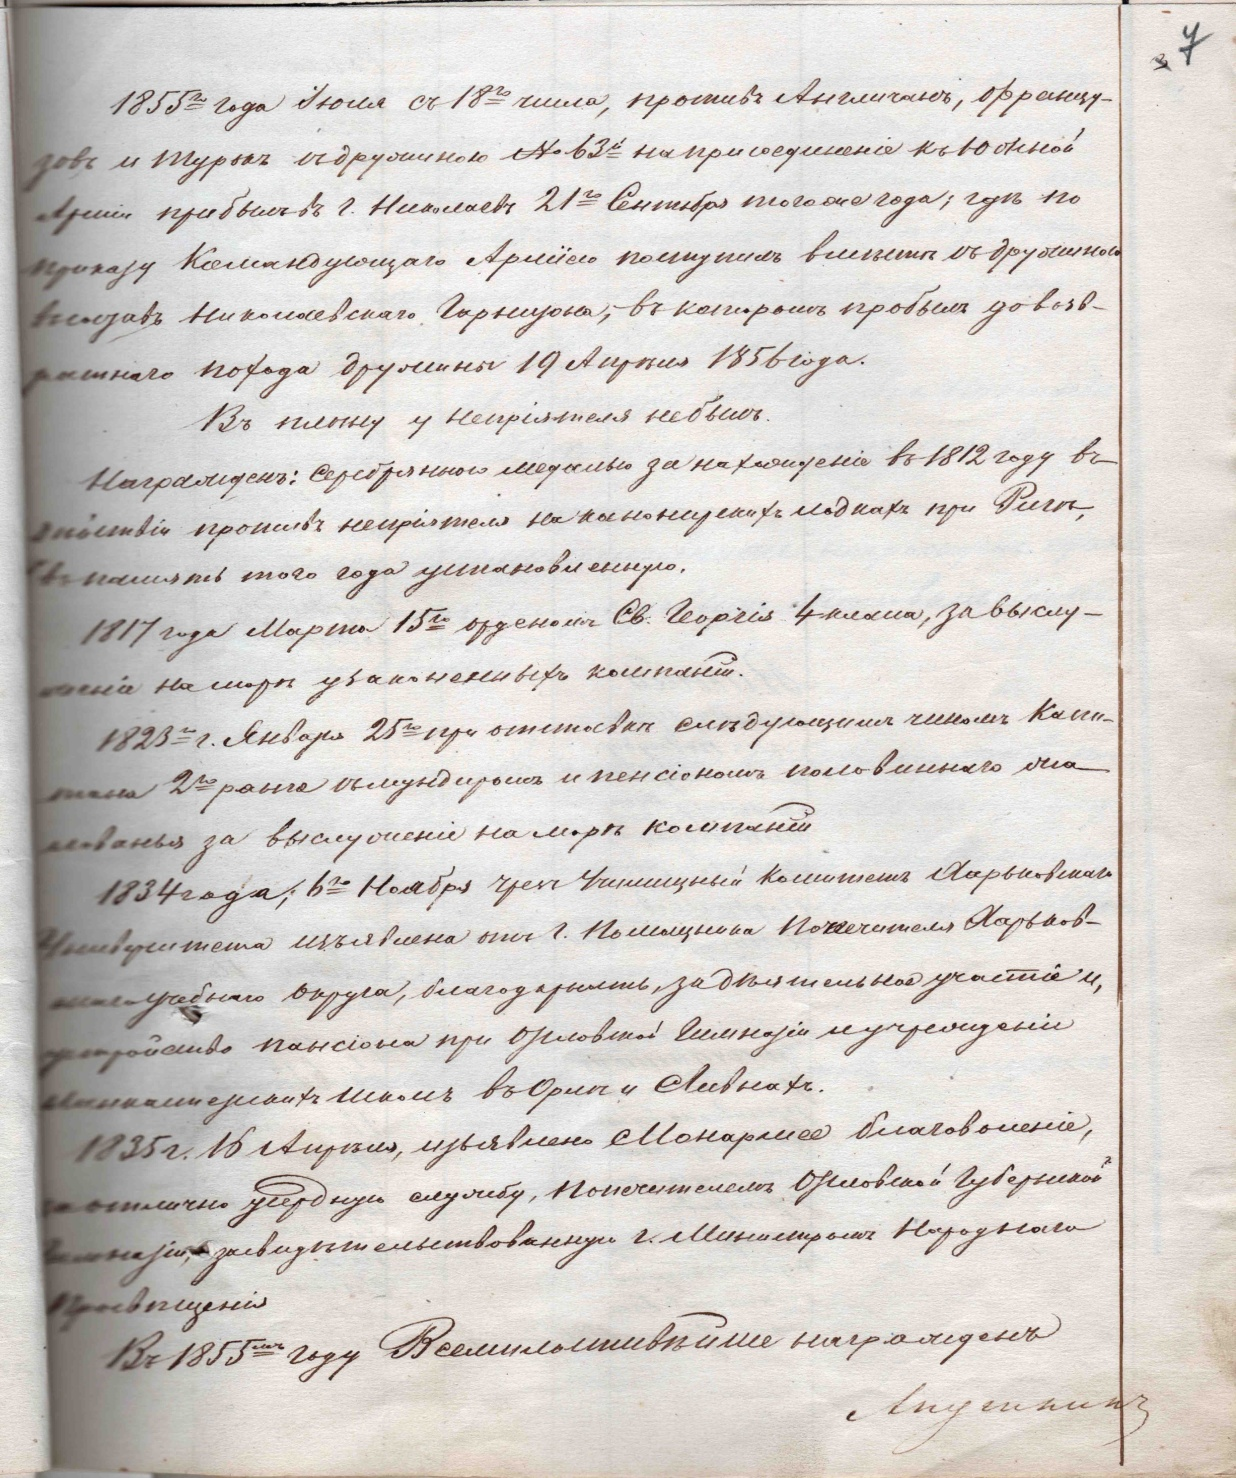 7
1855го года Іюля съ 18го числа, противъ Англичанъ, Францу-
зовъ и Турокъ съ дружиною № 63й на присоединеніе къ Южной
Арміи прибылъ въ г. Николаевъ 21го Сентября того же года; гдѣ по
приказу Командующаго Арміею поступилъ вмѣстѣ съ дружиною
въ составъ Николаевскаго Гарнизона, въ которомъ пробылъ до возв-
ратнаго похода дружины 19 Апрѣля 1856 года.
Въ плѣну у непріятеля небылъ.
Награжденъ: серебрянною медалью за нахожденіе въ 1812 году въ
дѣйствіи противъ непріятеля на канонирскихъ лодкахъ при Ригѣ,
въ память того года установленную.
1817 года Марта 15го орденомъ Св. Георгія 4 класа, за выслу-
женіе на морѣ узаконенныхъ компаній.
1823го г. Января 25го при отставкѣ слѣдующимъ чиномъ Капи-
тана 2го ранга съ мундиромъ и пенсіономъ половиннаго жа-
лованья за выслуженіе на морѣ компаній
1834 года, 6го Ноября чрезъ Училищный Комитетъ Харьковскаго
Университета изъявлена отъ г. Помощника Попечителя Харьков-
скаго учебнаго округа, благодарность, за дѣятельное участіе и,
устройство пансіона при Орловской Гимназіи и учрежденіи
Ланкастерскихъ школъ въ Орлѣ и Ливнахъ.
1835 г. 16 Апрѣля, изъявлено Монаршее благоволеніе,
за отлично усердную службу, Попечителемъ Орловской Губернской
Гимназіи, засвидѣтельствованную г. Министромъ Народнаго
Просвѣщенія
Въ 1855мъ году Всемилостивѣйше награжденъ